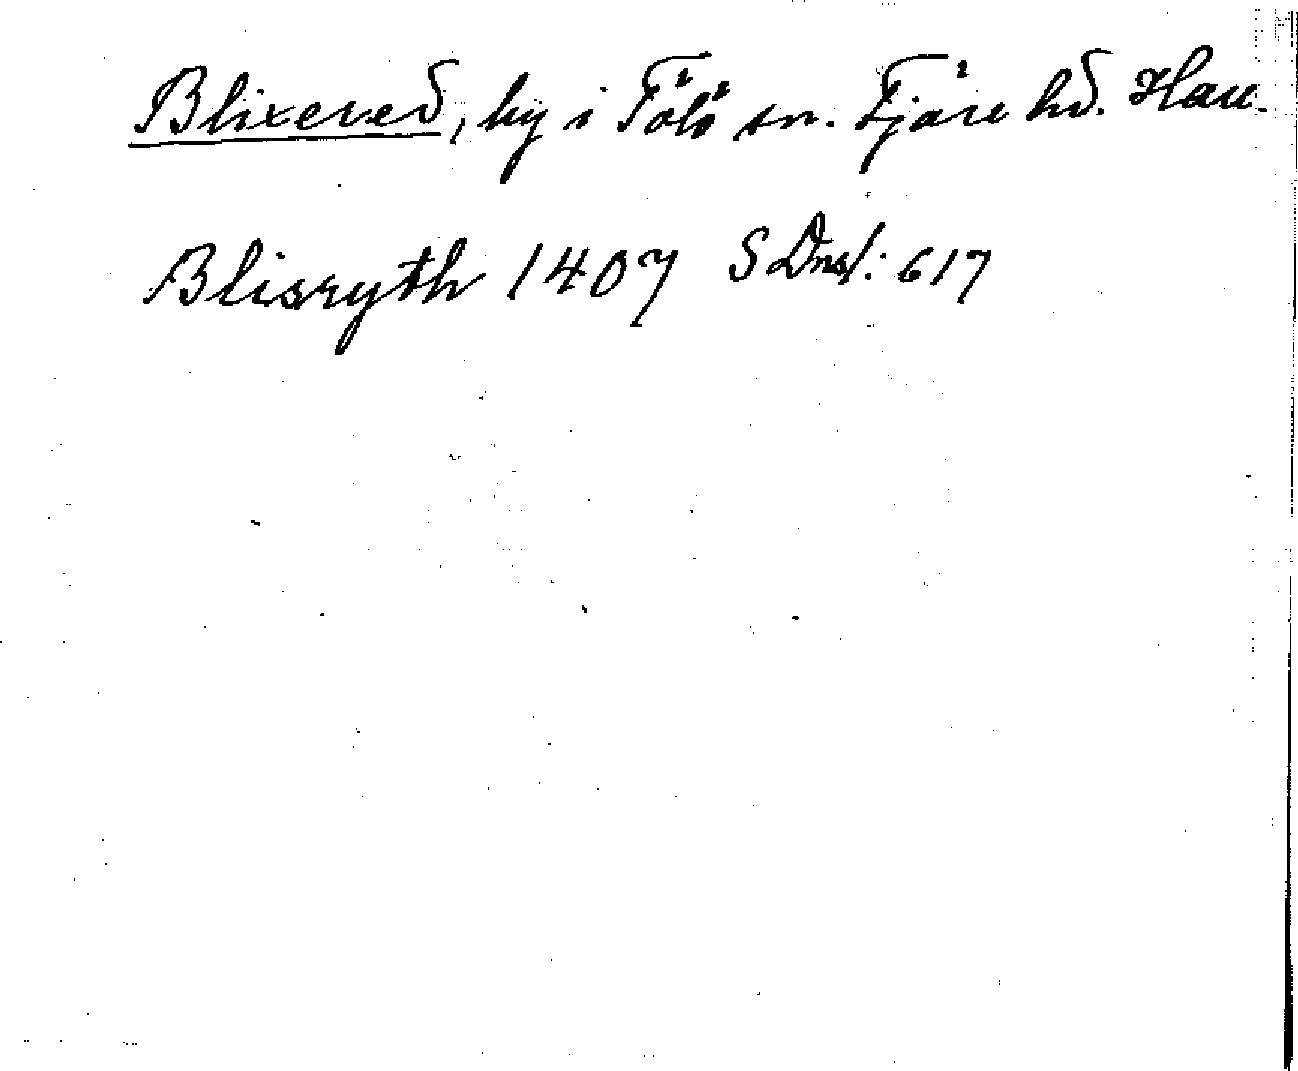 Blixered, by i Tölö sn. Fjäre hd. Hall.
Blisryth 1407 SDns1: 617